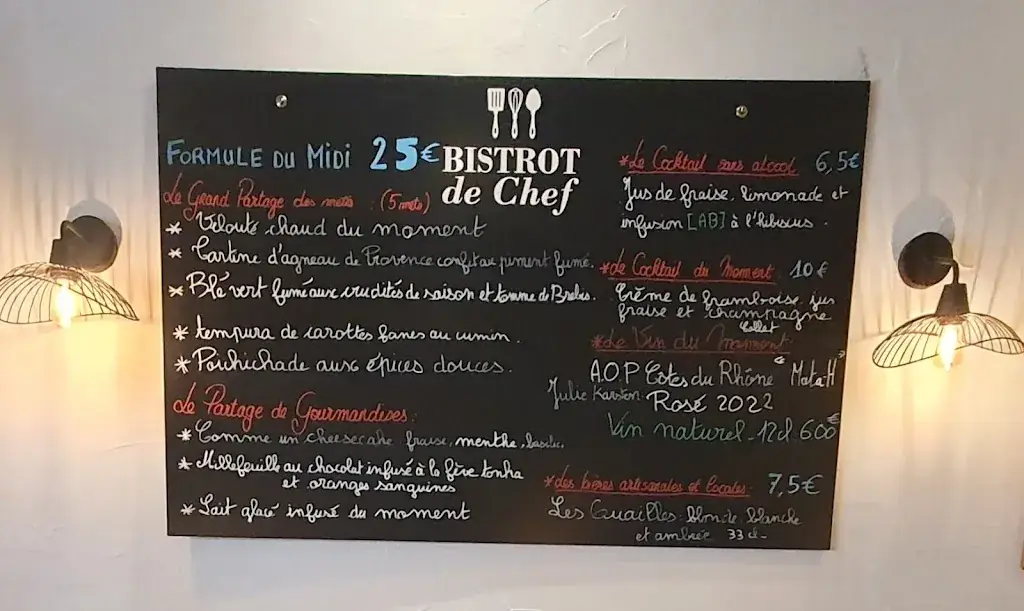 BISTROT
de Chef
FORMULE DU MiDi 25€
Le Grand Partage des mets : (5 mets)
* Velouté chaud du moment
* Tartine d'agneau de Provence confit au piment fumé.
* Blé vert fumé aux crudités de saison et tomme de Brebis.
* tempura de carottes fanes au cumin.
* Poichichade aux épices douces.
Le Partage de Gourmandises:
* Comme un cheesecake fraise, menthe, basilic.
* Millefeuille au chocolat infusé à la fève tonka
et oranges sanguines
* Lait glacé infusé du moment
*Le Cocktail sans alcool 6,5€
Jus de fraise, limonade et
infusion [LAB] à l'hibiscus.
*Le Cocktail du Moment 10€
Crème de framboise, jus
fraise et champagne
Collet
*Le Vin du Moment
A.O.P Côtes du Rhône "Mata H"
Julie Karsten Rosé 2022
Vin naturel - 12cl - 6.00€
*Les bières artisanales et locales 7,5€
Les Cuailles: blonde blanche
et ambrée 33 cl-